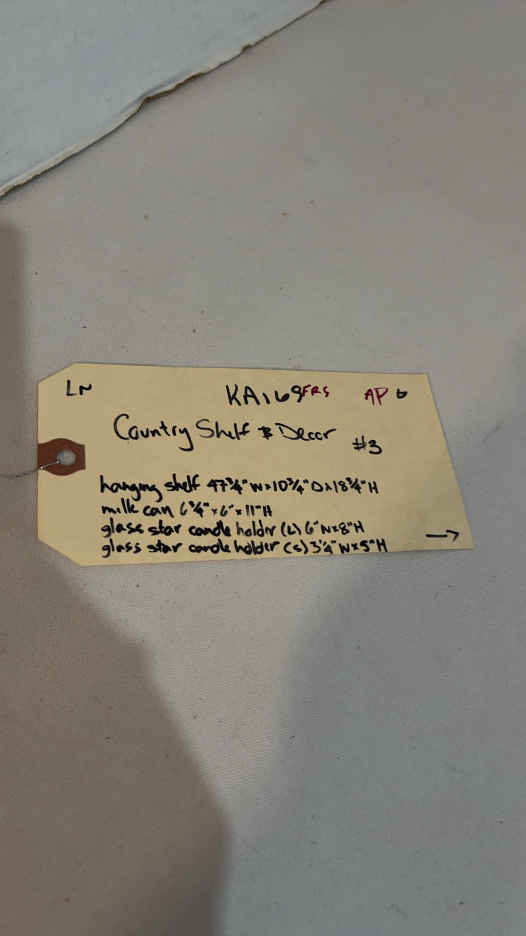 LN KA169 FRS AP 6
Country Shelf & Decor #3
hanging shelf 47¾"W×10¾"D×18¾"H
milk can 6¾"×6"×11"H
glass star candle holder (L) 6"W×8"H
glass star candle holder (s) 3¼"W×5"H →